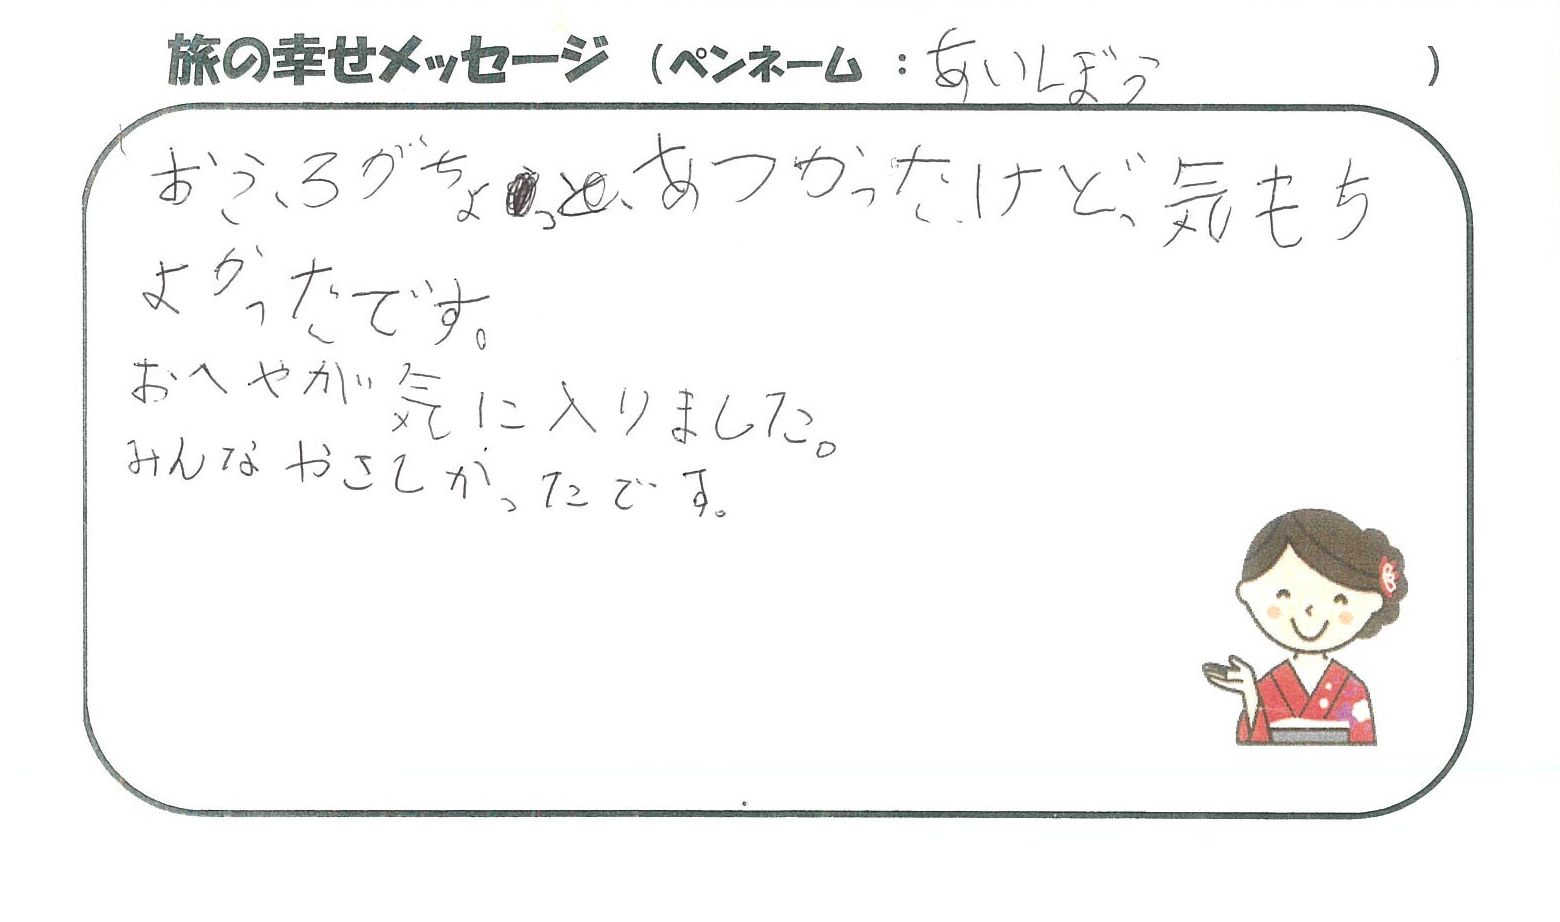 旅の幸せメッセージ (ペンネーム : あいしぼう )
おふろがちょっと、あつかったけど、気もち
よかったです。
おへやが気に入りました。
みんなやさしかったです。